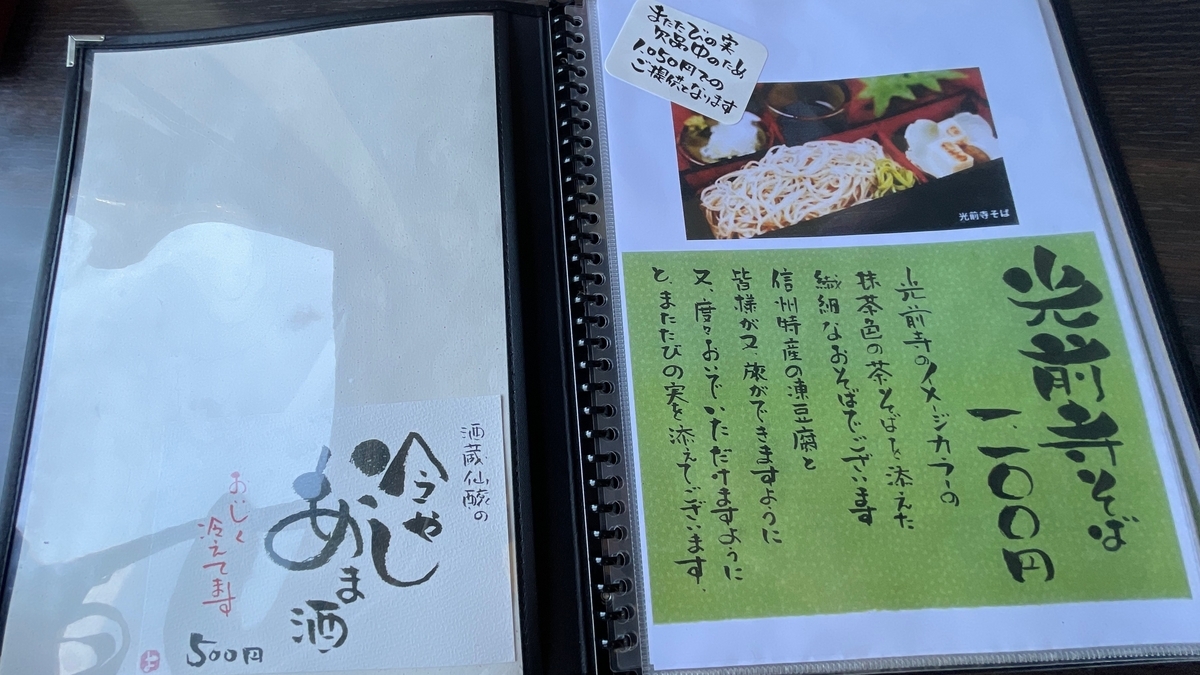 酒蔵仙醸の
冷やし
あま酒
おいしく
冷えてます
500円
またたびの実
欠品中のため
1,050円での
ご提供となります
光前寺そば
光前寺そば
一、一〇〇円
光前寺のイメージカラーの
抹茶色の茶そばを添えた
繊細なおそばでございます
信州特産の凍豆腐と
皆様が又、旅ができますように
又、度々おいでいただけますように
と、またたびの実を添えてございます。